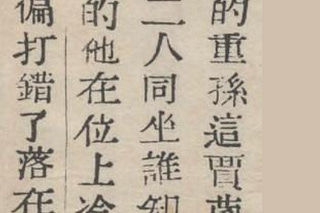 的重孫這賈
二人同坐誰知
的他在位上冷
偏打錯了落在